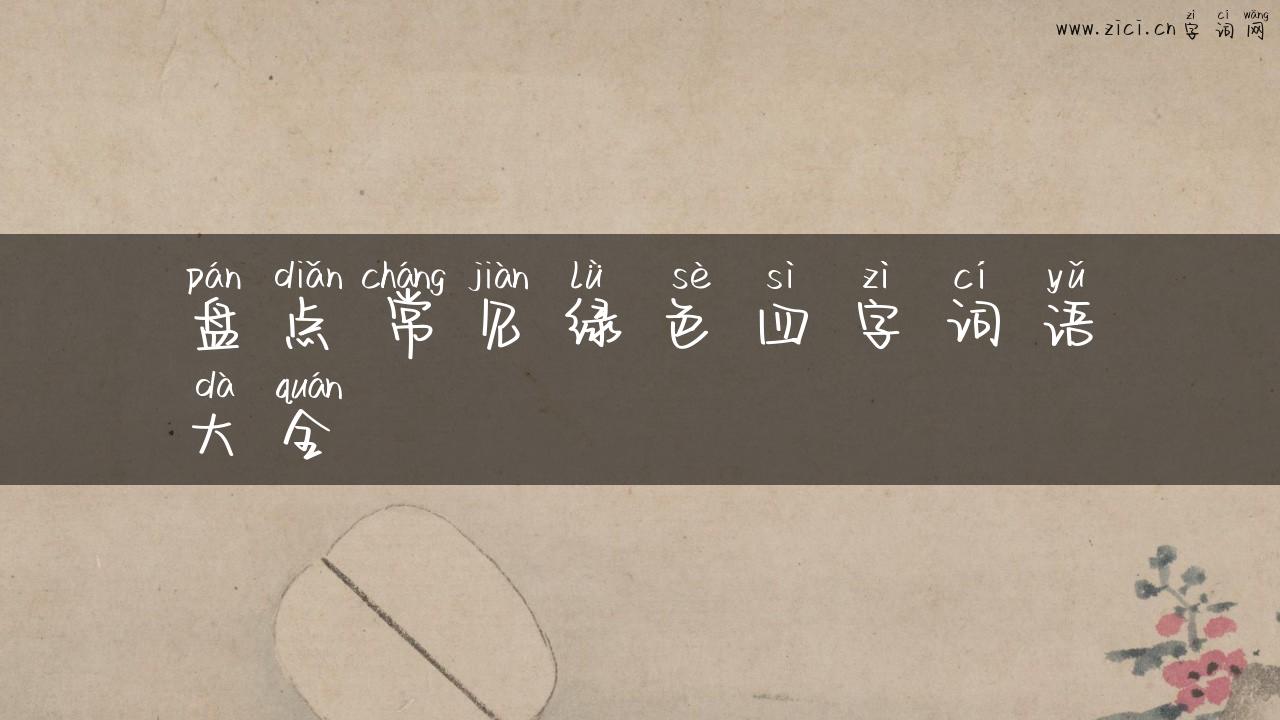 zì cí wǎng
www.zici.cn 字词网
pán diǎn cháng jiàn lǜ sè sì zì cí yǔ
盘点常见绿色四字词语
dà quán
大全